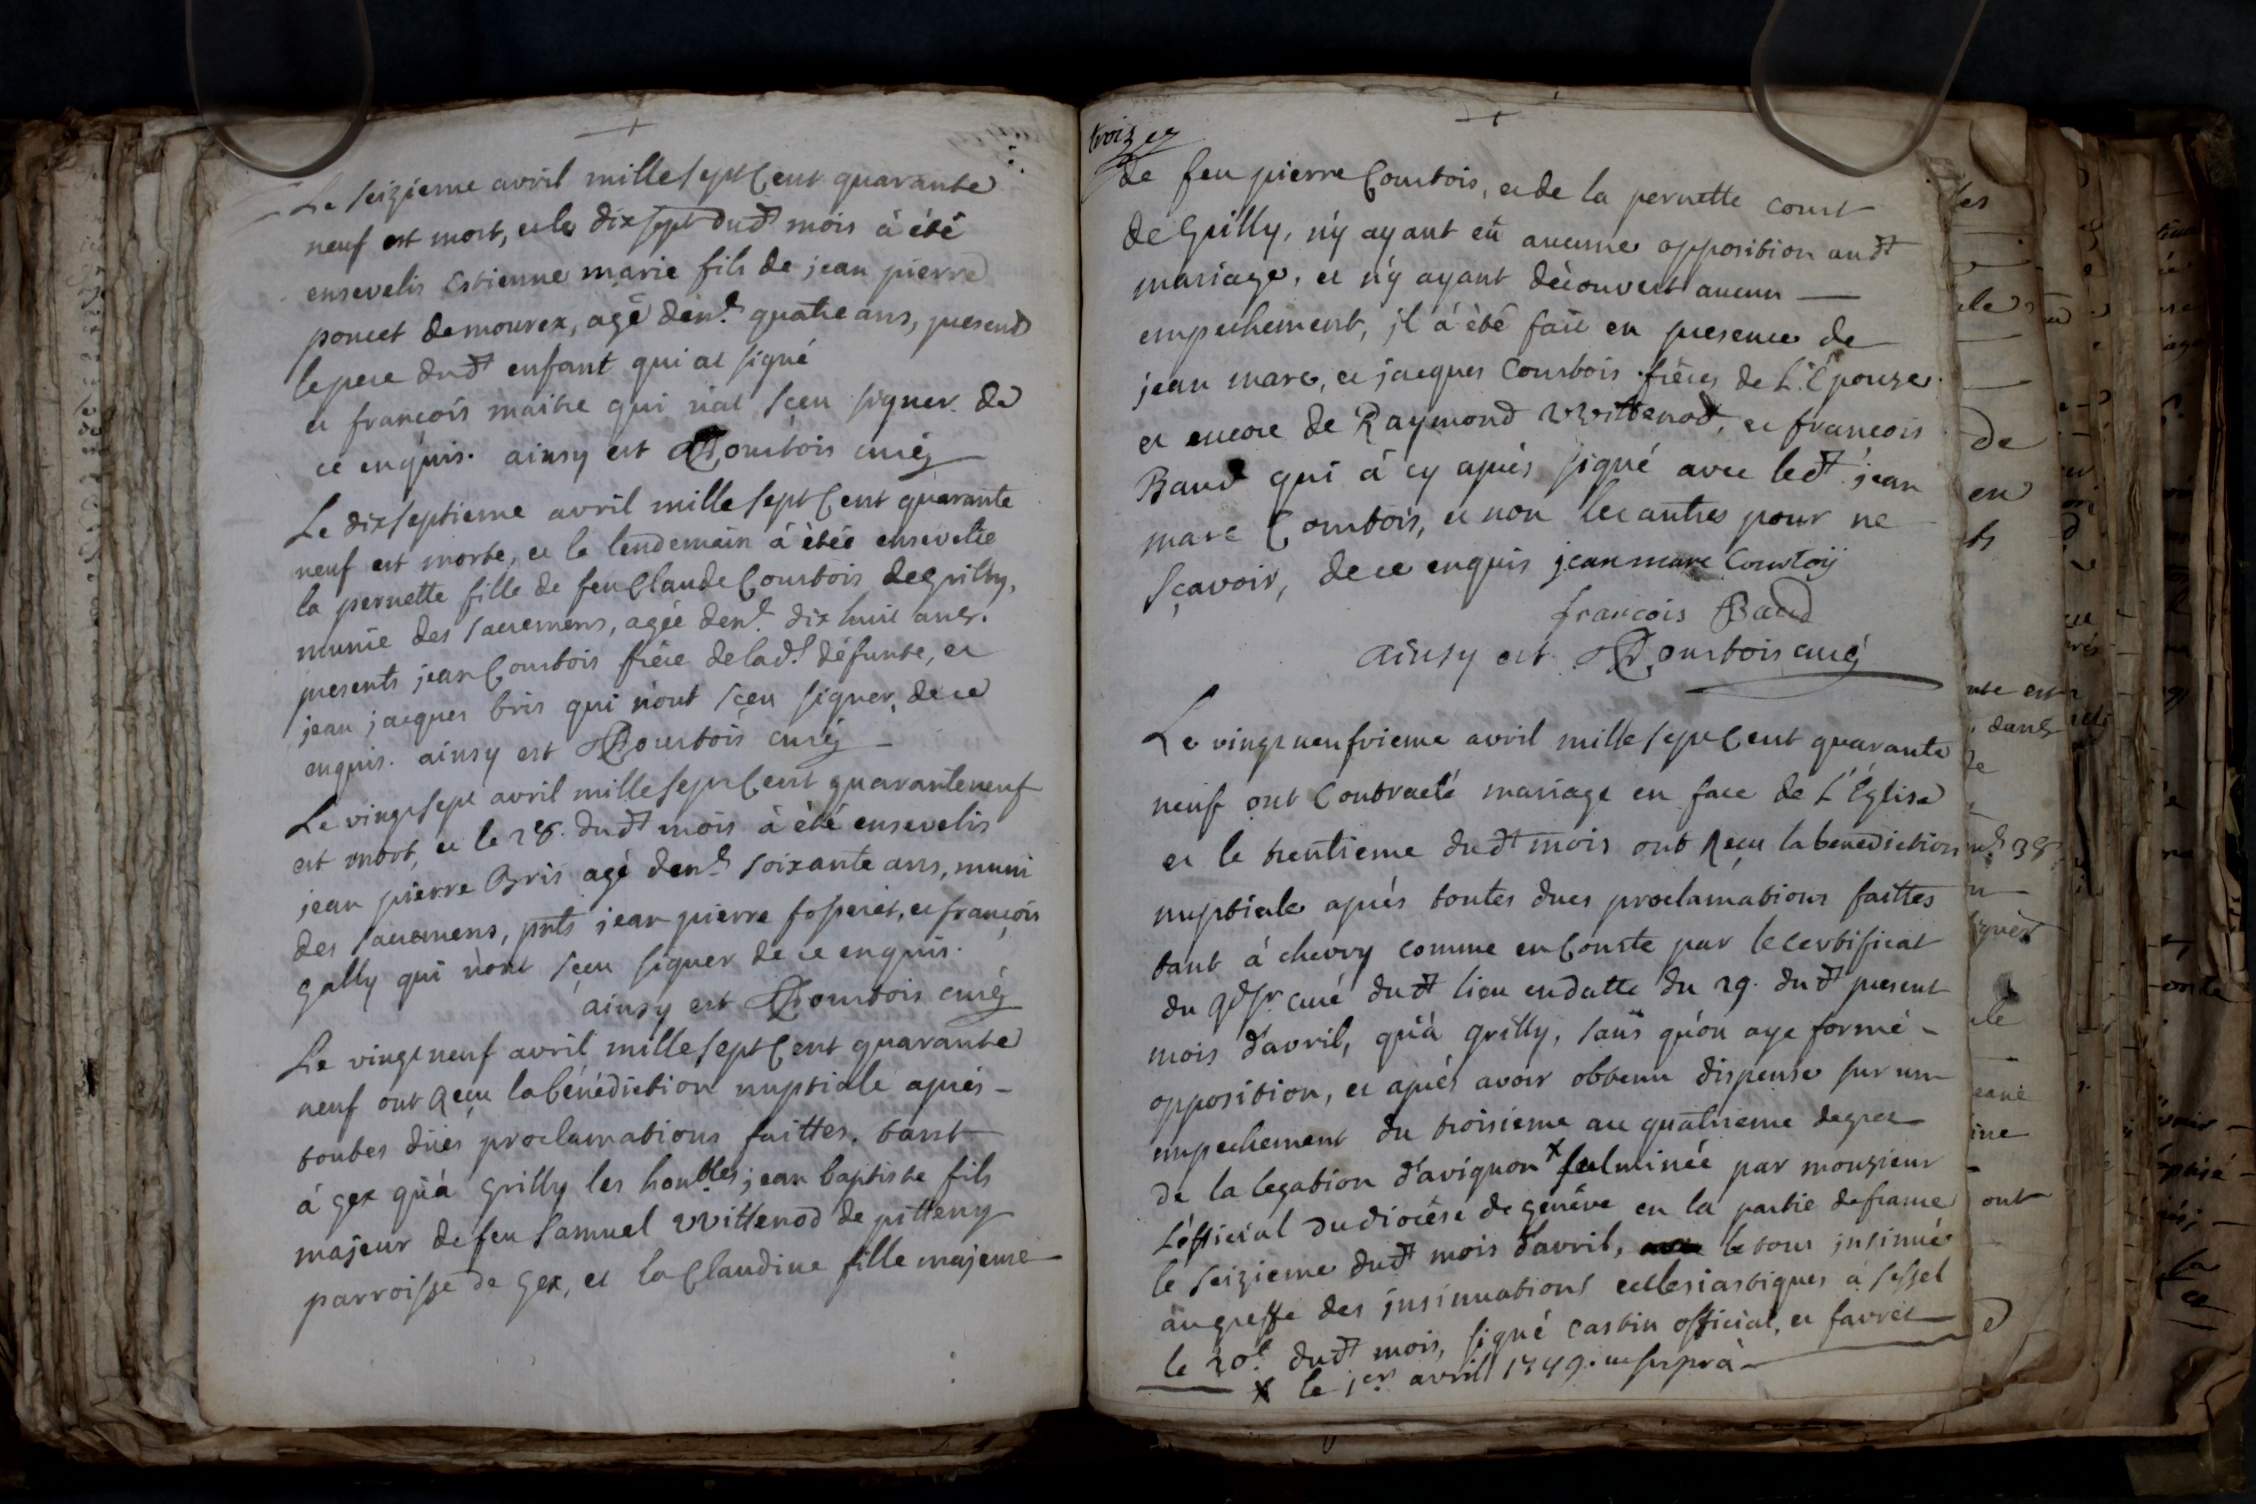 Le seizieme avril mille sept Cent quarante
neuf est mort, et le dix sept dudt mois à été
ensevelis Estienne marie fils de jean pierre
poncet de mourex, agé denn. quatre ans, present
le pere dudt enfant qui at signé
et francois maitre qui n'at sçeu signer de
ce enquis. ainsy est Courtois curé
Le dixseptieme avril mille sept Cent quarante
neuf est morte, et le lendemain à étéé ensevelie
la pernette fille de feu Claude Courtois de grilly,
munie des sacremens, agée denn. dix huit ans.
presents jean Courtois frére de lade. défunte, et
jean jacques bris qui n'ont sçeu signer, de ce
enquis. ainsy est Courtois curé
Le vingt sept avril mille sept Cent quaranteneuf
est mort, et le 28. dudt mois à été ensevelis
jean pierre Bris agé denn. soixante ans, muni
des sacremens, pnts jean pierre fosseret, et françois
gally qui n'ont sçeu signer de ce enquis.
ainsy est Courtois curé
Le vingt neuf avril mille sept Cent quarante
neuf ont Reçu la bénédiction nuptiale aprés
toutes düés proclamations faittes, tant
à gex qu'à grilly les honbles jean baptiste fils
majeur de feu Samuel vvittenod de pitteny
parroisse de gex, et la Claudine fille majeure
troizez
de feu pierre Courtois, et de la pernette court
de grilly, n'y ayant eü aucune opposition audt
mariage, et n'y ayant décoouvert aucun
empechement, jl à été fait en presence de
jean marc, et jacques Courtois fréres de L'Epouze
et encore de Raymond vvittenod, et francois
Baud qui à cy aprés signé avec ledt jean
marc Courtois, et non les autres pour ne
sçavoir, de ce enquis jean marc Courtoij
francois Baud
ainsy est Courtois curé
Le vingt neufvieme avril mille sept Cent quarante
neuf ont Contracté mariage en face de L'Eglise
et le trentieme dudt mois ont Reçu la benediction
nuptiale aprés toutes dues proclamations faittes
tant à chevry comme en Conste par le certificat
du Sr curé dudt lieu en datte du 29. dudt present
mois d'avril, qu'à grilly, sans qu'on aye formé
opposition, et aprés avoir obtenu dispense sur un
empechement du troisieme au quatrieme degrez
de la legation d'avignon x fulminée par monsieur
L'official du diocése de genéve en la partie de france
le seizieme dudt mois d'avril, le tout insinué
au greffe des jnsinuations ecclesiastiques à seissel
le 20e. dudt mois, signé castin official, et favret
x le jer avril 1749. ut suprà